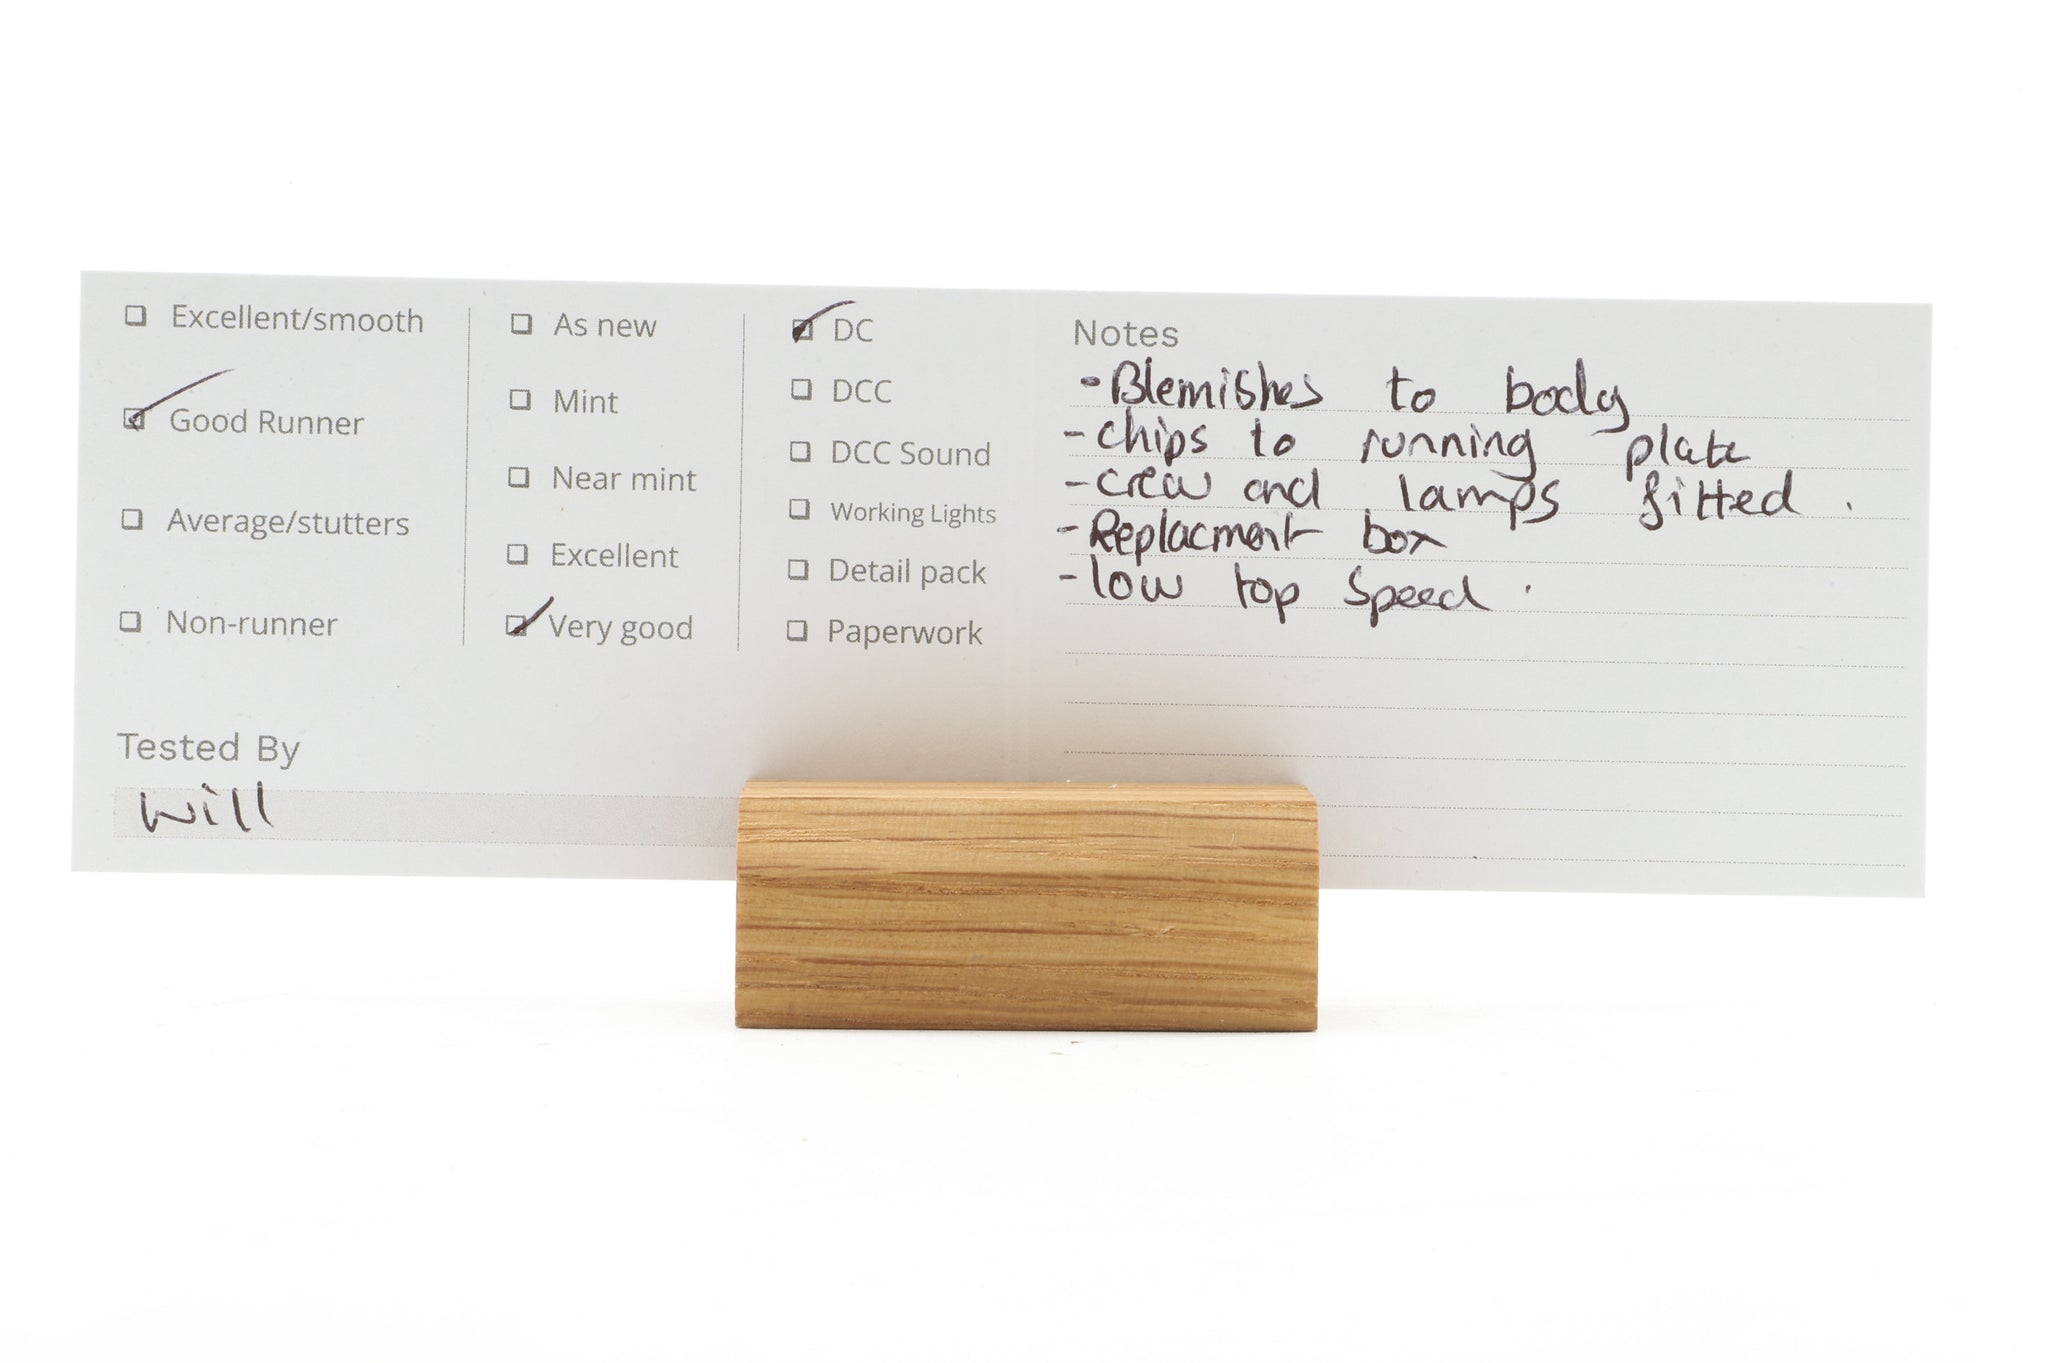 Excellent/smooth
Good Runner
Average/stutters
Non-runner
As new
Mint
Near mint
Excellent
Very good
DC
DCC
DCC Sound
Working Lights
Detail pack
Paperwork
Tested By
Will
Notes
- Blemishes to body
- chips to running plate
- crew and lamps fitted.
- Replacment box
- low top speed.